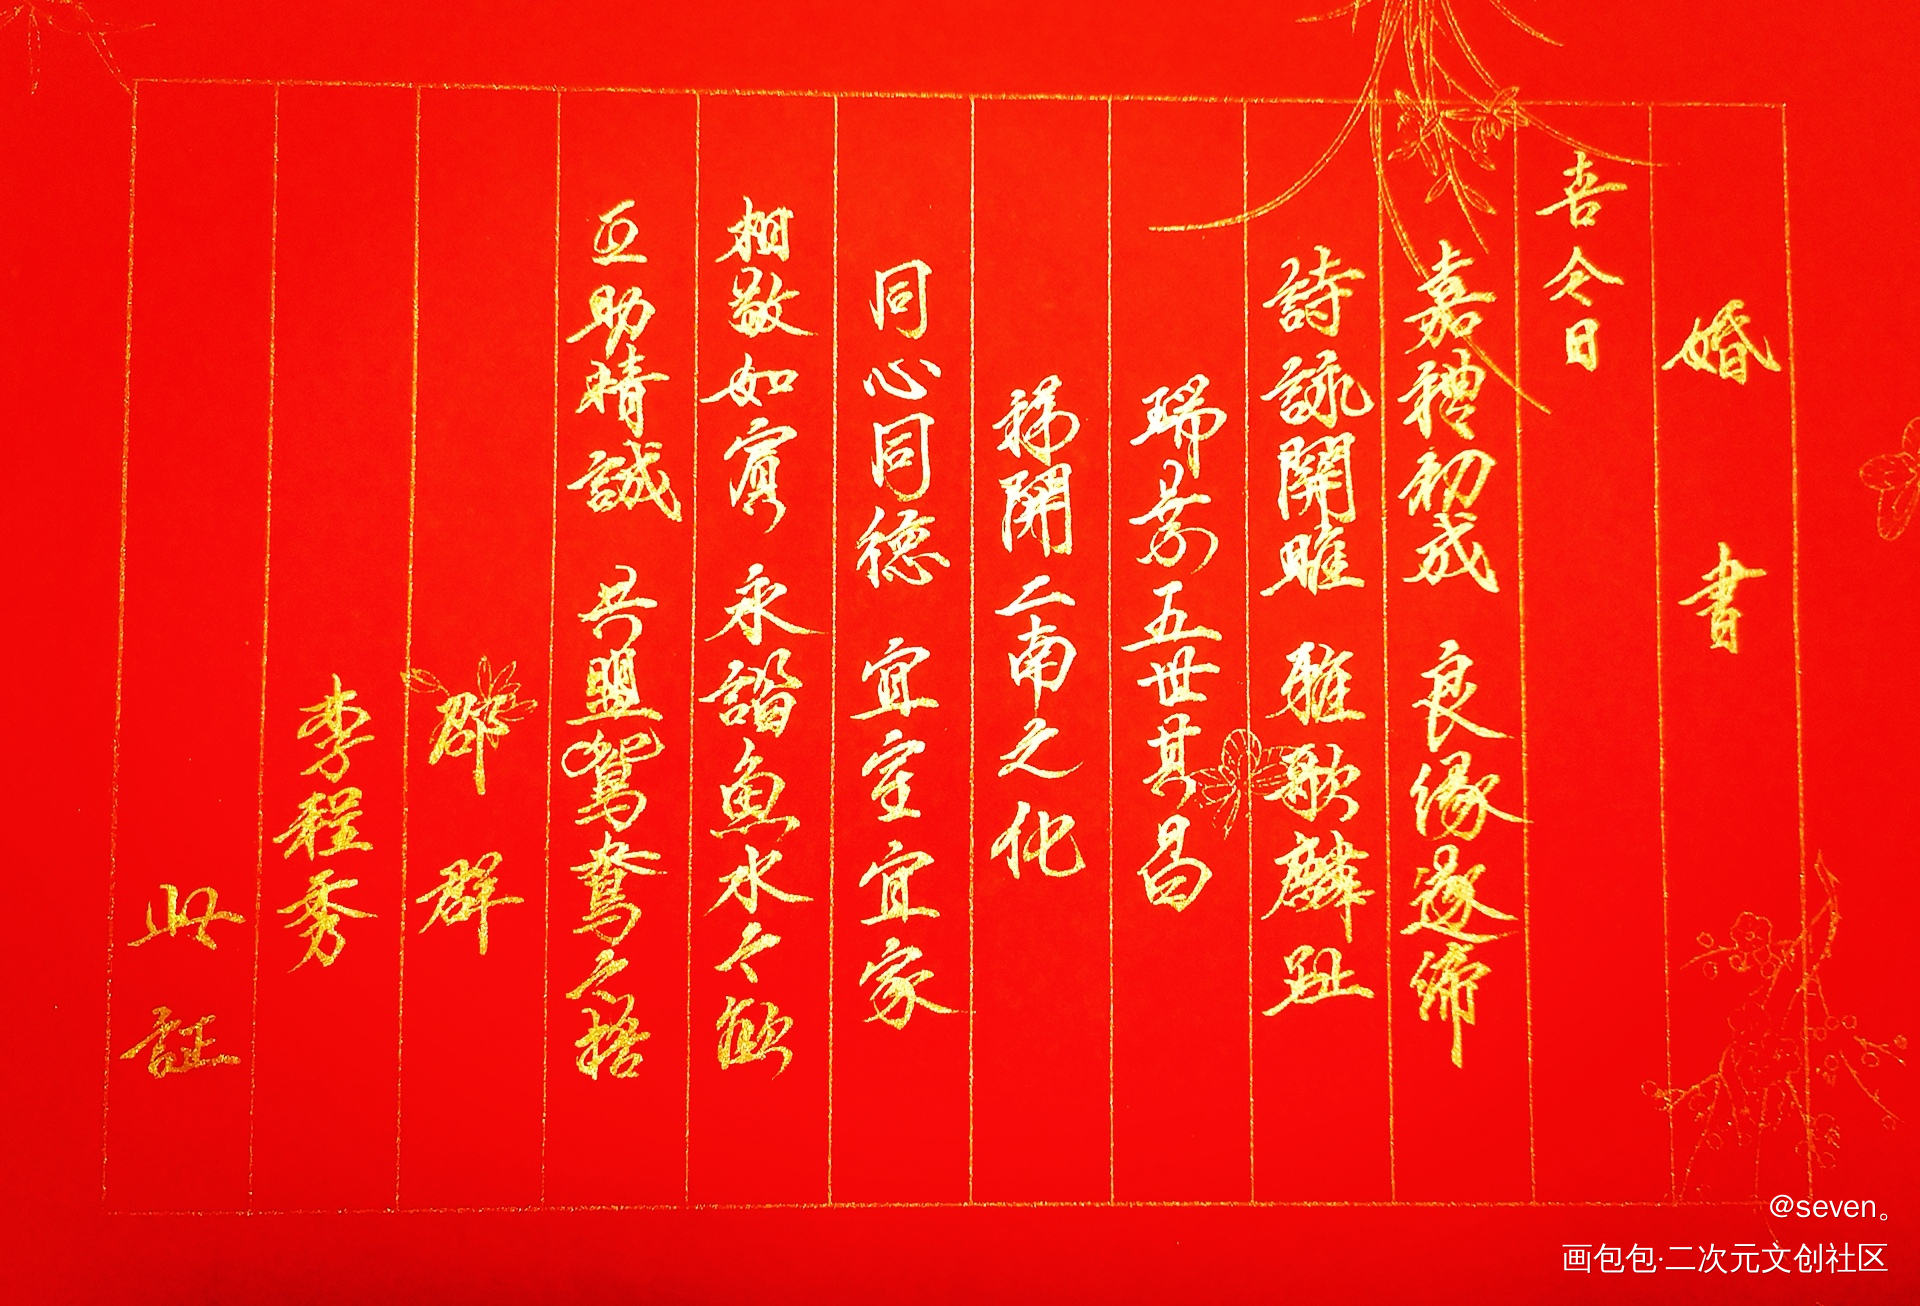 婚書
喜今日
嘉禮初成 良缘遂缔
詩詠關雎 雅歌麟趾
瑞葉五世其昌
祥開二南之化
同心同德 宜室宜家
相敬如賓 永諧魚水之歡
互助精誠 共盟鴛鴦之誓
邵群
李程秀
此証
@seven。
画包包·二次元文创社区